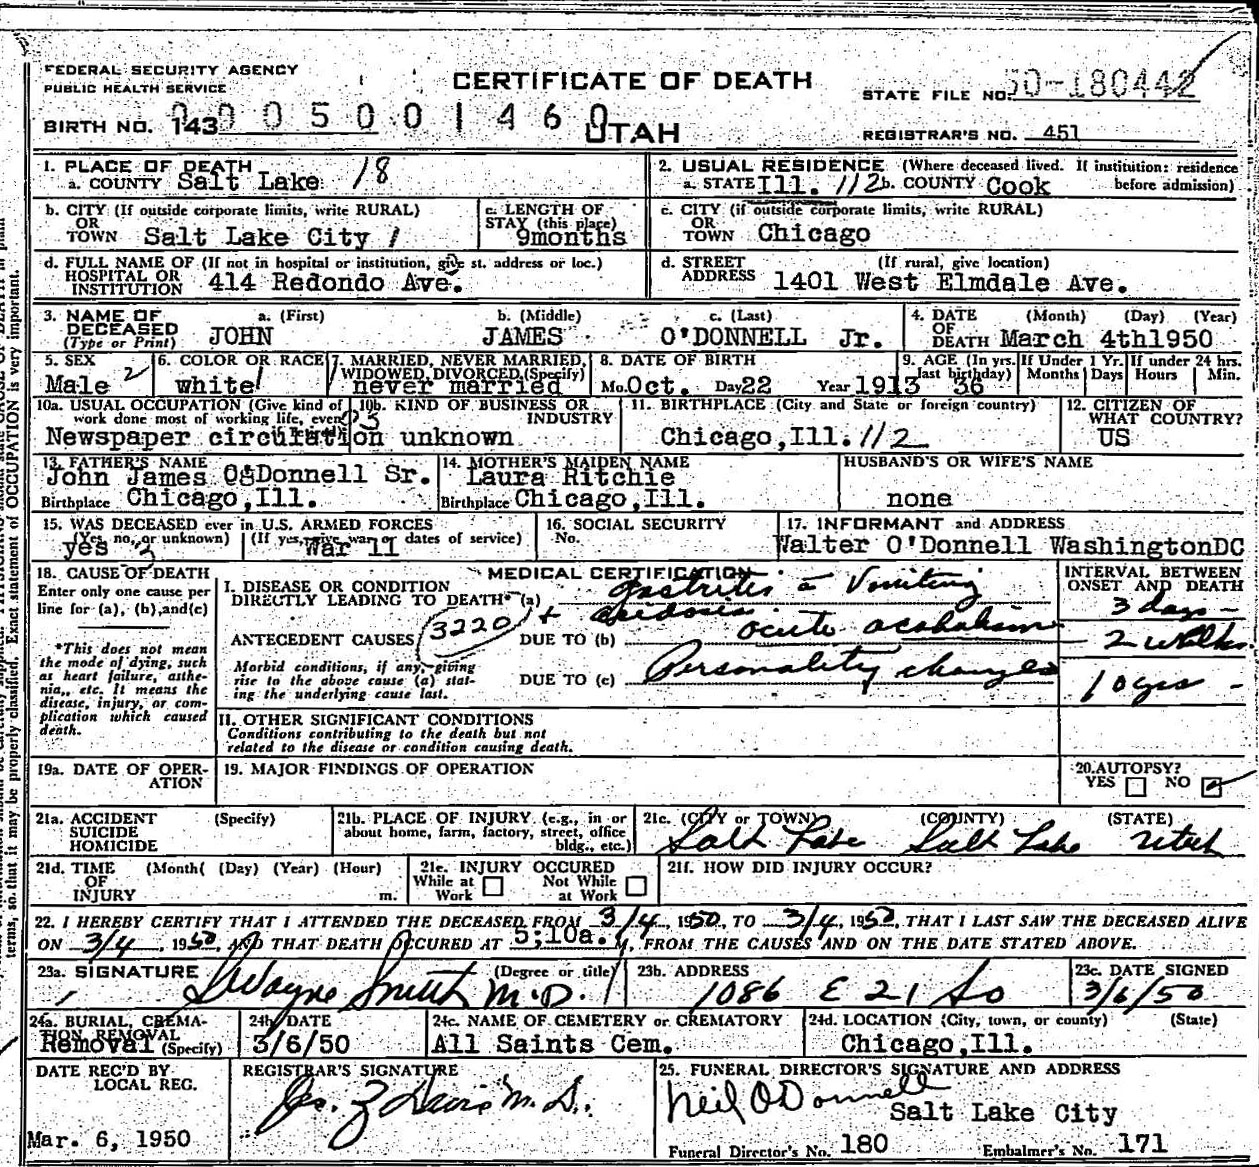 FEDERAL SECURITY AGENCY
PUBLIC HEALTH SERVICE
CERTIFICATE OF DEATH
UTAH
STATE FILE NO. 50-180442
BIRTH NO. 143 0005001460
REGISTRAR'S NO. 451
1. PLACE OF DEATH
a. COUNTY Salt Lake 18
2. USUAL RESIDENCE (Where deceased lived. If institution: residence before admission)
a. STATE Ill. 112 b. COUNTY Cook
b. CITY (If outside corporate limits, write RURAL)
OR
TOWN Salt Lake City 1
c. LENGTH OF
STAY (this place)
9months
c. CITY (if outside corporate limits, write RURAL)
OR
TOWN Chicago
d. FULL NAME OF (If not in hospital or institution, give st. address or loc.)
HOSPITAL OR
INSTITUTION 414 Redondo Ave.
d. STREET (If rural, give location)
ADDRESS 1401 West Elmdale Ave.
3. NAME OF DECEASED
(Type or Print)
a. (First) b. (Middle) c. (Last)
JOHN JAMES O'DONNELL Jr.
4. DATE OF DEATH (Month) (Day) (Year)
March 4th1950
5. SEX
Male 2
6. COLOR OR RACE
white 1
7. MARRIED, NEVER MARRIED,
WIDOWED, DIVORCED (Specify)
never married
8. DATE OF BIRTH
Mo. Oct. Day 22 Year 1913
9. AGE (In yrs. last birthday) 36
If Under 1 Yr. Months Days
If under 24 hrs. Hours Min.
10a. USUAL OCCUPATION (Give kind of
work done most of working life, even
Newspaper circulation
10b. KIND OF BUSINESS OR
INDUSTRY
unknown
11. BIRTHPLACE (City and State or foreign country)
Chicago,Ill. 112
12. CITIZEN OF
WHAT COUNTRY?
US
13. FATHER'S NAME
John James O'Donnell Sr.
Birthplace Chicago,Ill.
14. MOTHER'S MAIDEN NAME
Laura Ritchie
Birthplace Chicago,Ill.
HUSBAND'S OR WIFE'S NAME
none
15. WAS DECEASED ever in U.S. ARMED FORCES
(Yes no, or unknown) (If yes, give war or dates of service)
yes 3 War 11
16. SOCIAL SECURITY
No.
17. INFORMANT and ADDRESS
Walter O'Donnell WashingtonDC
18. CAUSE OF DEATH
Enter only one cause per
line for (a), (b),and(c)
*This does not mean
the mode of dying, such
as heart failure, asthe-
nia, etc. It means the
disease, injury, or com-
plication which caused
death.
MEDICAL CERTIFICATION
INTERVAL BETWEEN
ONSET AND DEATH
I. DISEASE OR CONDITION
DIRECTLY LEADING TO DEATH* (a) Gastrites c Vomiting
+ acidosis 3 days -
3220
ANTECEDENT CAUSES DUE TO (b) acute acoholism 2 weeks
Morbid conditions, if any, giving
rise to the above cause (a) stat-
ing the underlying cause last.
DUE TO (c) Personality changes 10 yrs -
II. OTHER SIGNIFICANT CONDITIONS
Conditions contributing to the death but not
related to the disease or condition causing death.
19a. DATE OF OPER-
ATION
19. MAJOR FINDINGS OF OPERATION
20. AUTOPSY?
YES NO
21a. ACCIDENT (Specify)
SUICIDE
HOMICIDE
21b. PLACE OF INJURY (e.g., in or
about home, farm, factory, street, office
bldg., etc.)
21c. (CITY or TOWN) (COUNTY) (STATE)
Salt Lake Salt Lake Utah
21d. TIME (Month) (Day) (Year) (Hour)
OF
INJURY m.
21e. INJURY OCCURED
While at Work Not While at Work
21f. HOW DID INJURY OCCUR?
22. I HEREBY CERTIFY THAT I ATTENDED THE DECEASED FROM 3/4, 1950, TO 3/4, 1950, THAT I LAST SAW THE DECEASED ALIVE
ON 3/4, 1950, AND THAT DEATH OCCURED AT 5;10a. M, FROM THE CAUSES AND ON THE DATE STATED ABOVE.
23a. SIGNATURE (Degree or title)
DWayne Smith M.D.
23b. ADDRESS
1086 E 21 So
23c. DATE SIGNED
3/6/50
24a. BURIAL, CREMA-
TION REMOVAL
Removal (Specify)
24b. DATE
3/6/50
24c. NAME OF CEMETERY or CREMATORY
All Saints Cem.
24d. LOCATION (City, town, or county) (State)
Chicago,Ill.
DATE REC'D BY
LOCAL REG.
Mar. 6, 1950
REGISTRAR'S SIGNATURE
Jos. Z Davis M.D.
25. FUNERAL DIRECTOR'S SIGNATURE AND ADDRESS
Neil O'Donnell
Salt Lake City
Funeral Director's No. 180 Embalmer's No. 171
terms, so that it may be properly classified. Exact statement of OCCUPATION is very important.